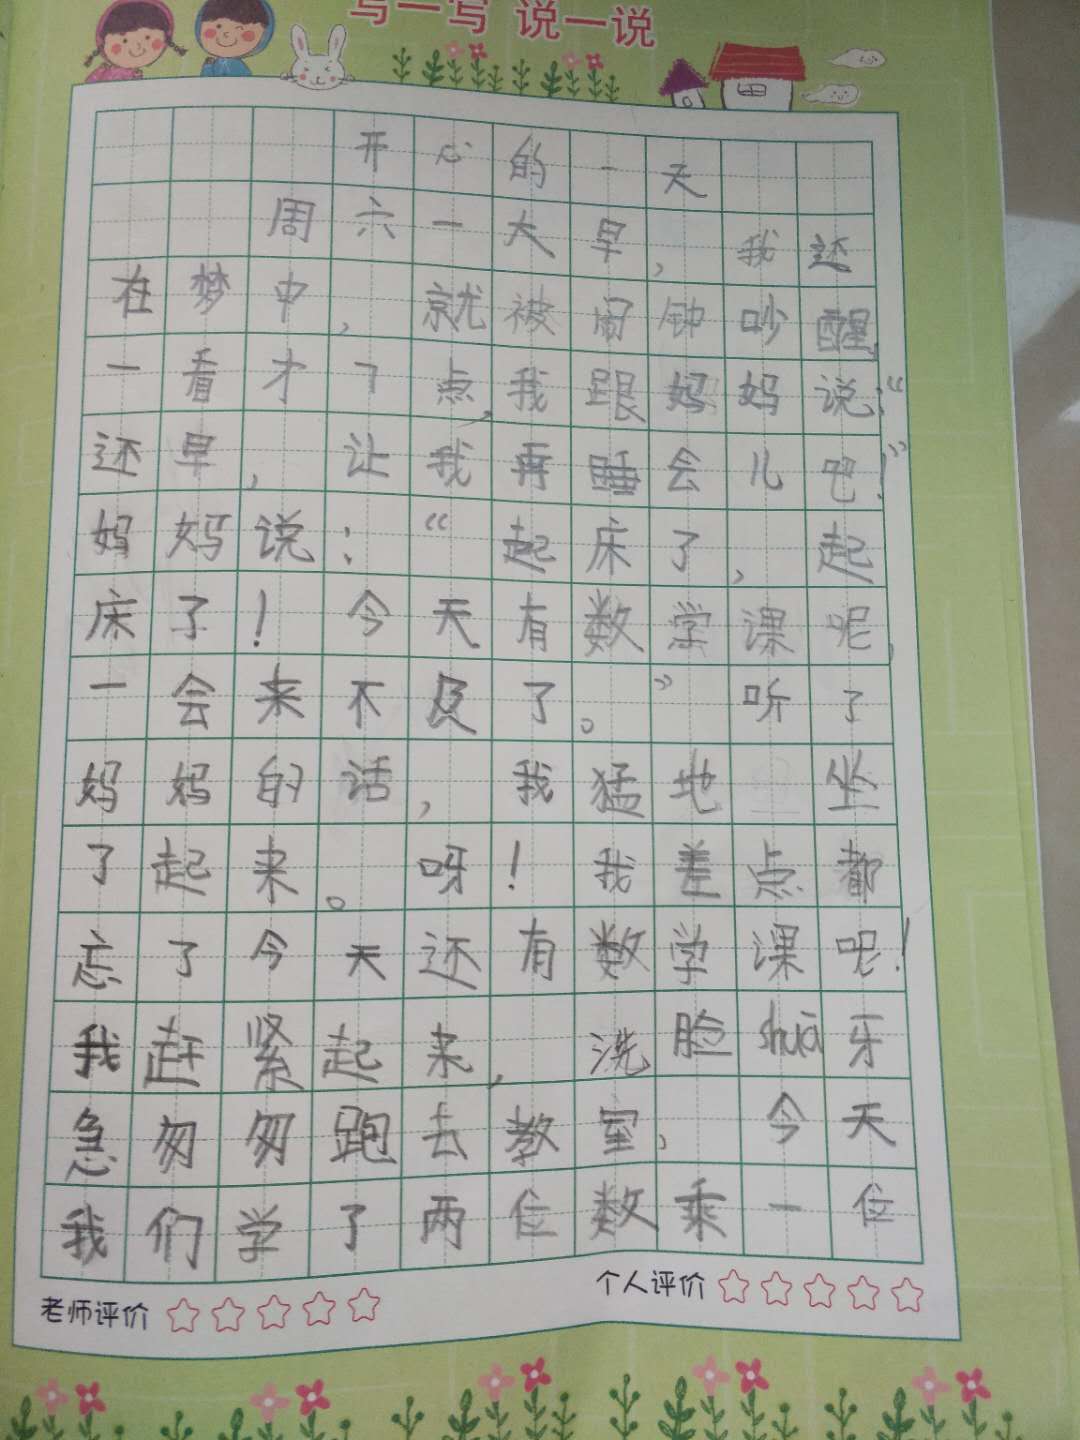 写一写 说一说
开心的一天
周六一大早，我还
在梦中，就被闹钟吵醒，
一看才7点，我跟妈妈说：“
还早，让我再睡会儿吧！”
妈妈说：“起床了，起
床了！今天有数学课呢，
一会来不及了。”听了
妈妈的话，我猛地坐
了起来。呀！我差点都
忘了今天还有数学课呢！
我赶紧起来，洗脸shuā牙
急匆匆跑去教室，今天
我们学了两位数乘一位
老师评价 个人评价